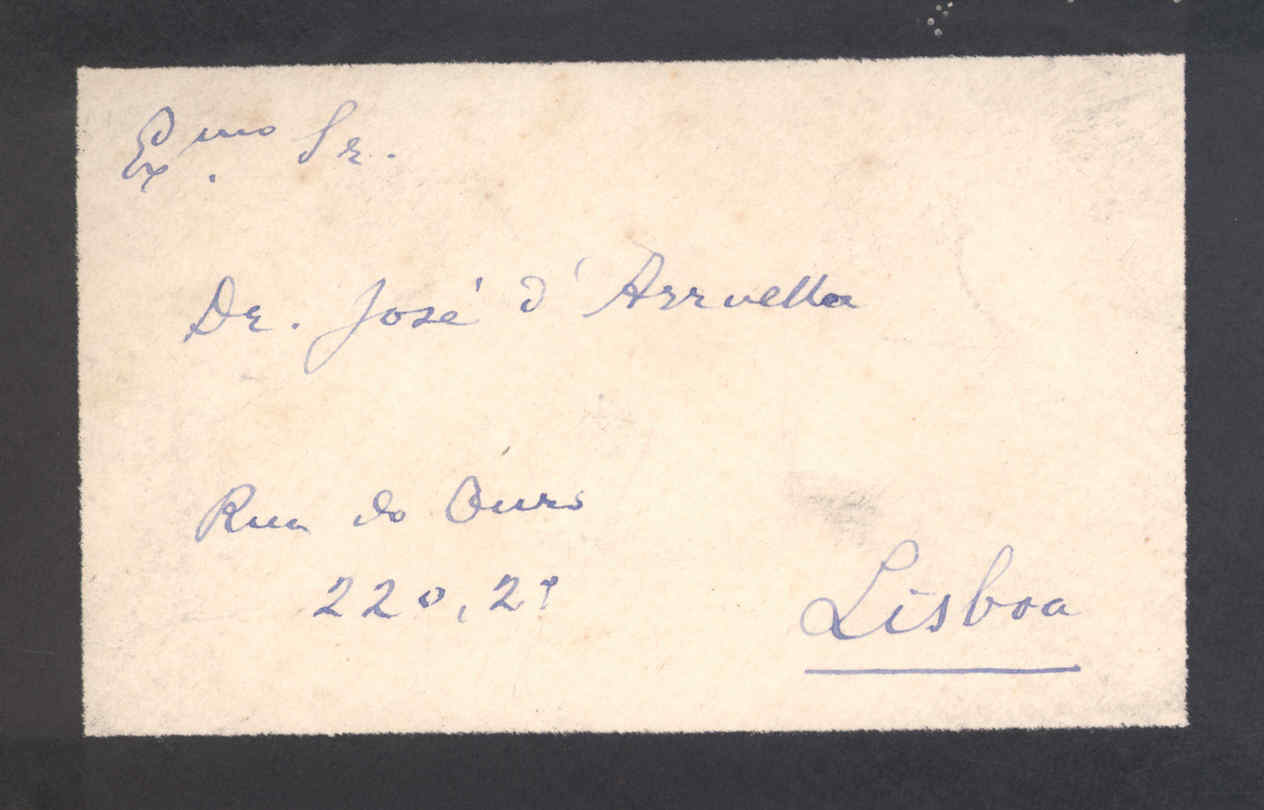 Ex.mo Sr.
Dr. José d'Arruella
Rua do Ouro
220, 2º
Lisboa